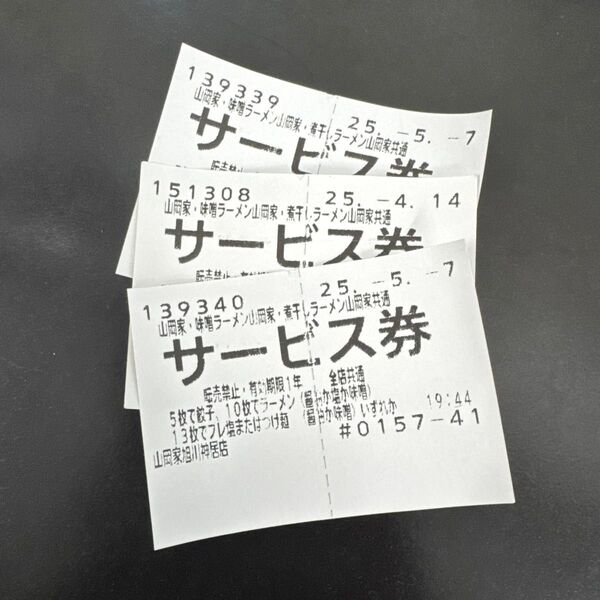 139339 25.-5.-7
山岡家・味噌ラーメン山岡家・煮干しラーメン山岡家共通
サービス券
転売禁止
151308 25.-4.14
山岡家・味噌ラーメン山岡家・煮干しラーメン山岡家共通
サービス券
転売禁止・有効期限
139340 25.-5.-7
山岡家・味噌ラーメン山岡家・煮干しラーメン山岡家共通
サービス券
転売禁止・有効期限1年 全店共通
5枚で餃子、10枚でラーメン(醤油か塩か味噌)
13枚でプレ塩またはつけ麺(醤油か味噌)いずれか 19:44
山岡家旭川神居店 #0157-41